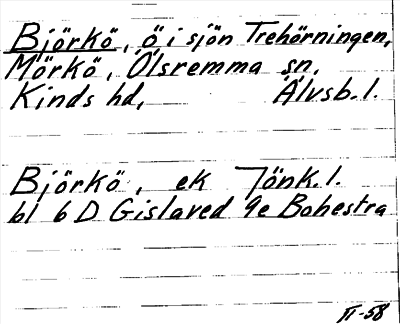 Björkö, ö i sjön Trehörningen,
Mörkö, Ölsremma sn.
Kinds hd, Älvsb. l.
Björkö, ek Jönk. l.
bl 6 D Gislaved 9e Bohestra
II-58